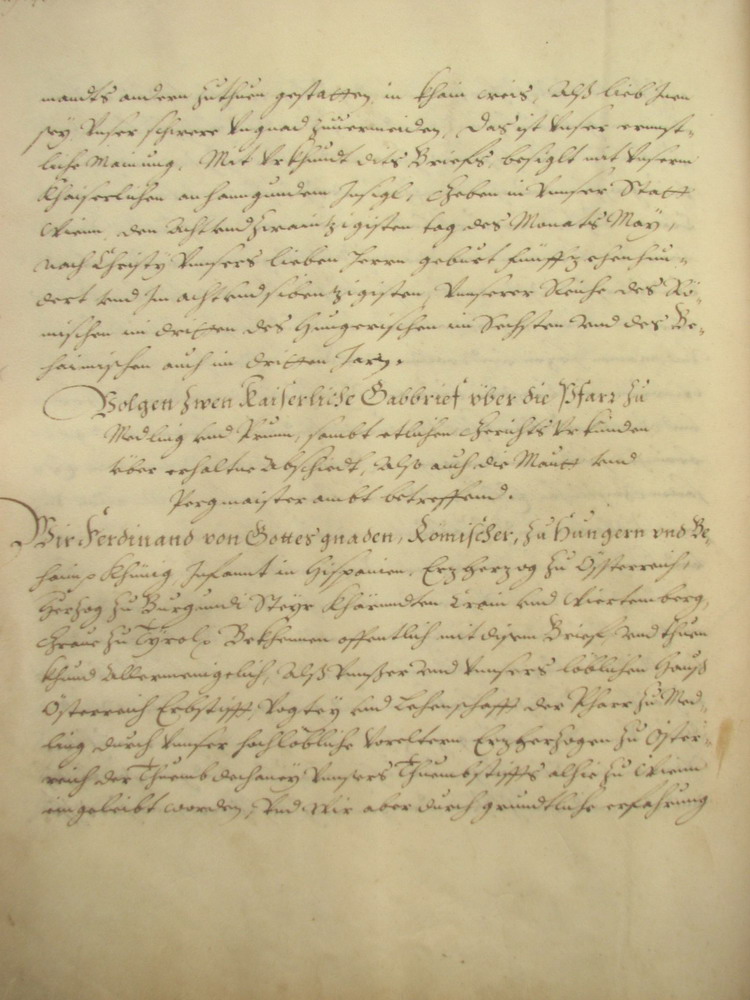 mandts andern zuthuen gestatten, in khain weis, Alß lieb Inen
sey Unser schwere Ungnad zuuermeiden, Das ist Unser ernnst-
liche Mainung, Mit Urkhundt dits Briefs, besiglt mit Unserm
Khaiserlichen anhanngundem Insigl, Geben in Unnser Statt
Wienn, den Acht und zwaintzigisten tag des Monats May,
nach Christy Unnsers lieben Herrn geburt fünffzehenhun-
dert und Im acht und sibentzigisten, Unnserer Reiche des Rö-
mischen im dritten des Hungerischen im Sechsten und des Be-
haimischen auch im dritten Jarn.
Volgen zwen Kaiserliche Gabbrief vber die Pfarr zu
Medling und Prunn, sambt etlichen Gerichts Urkunden
vber erhaltne Abschiedt, Also auch die Mautt und
Pergmaister ambt betreffend.
Wir Ferdinand von Gottes gnaden, Römischer, zu Hungern vnd Be-
haim p Khünig, Infannt in Hispanien, Erzherzog zu Össterreich,
Herzog zu Burgundi Steyr Khärnndten Crain und Wiertemberg,
Graue zu Tyrol p Bekhennen offentlich mit disem Brief und thuen
khund Allermenigelich, Alß Unnßer und Unnsers löblichen Hauß
Össterreich Erbstifft, Vogtey und Lehenschafft der Pharr zu Med-
ling durch Unnser hochlöbliche Voreltern Erzherzogen zu Öster-
reich der Thuemb dechaney Unnsers Thuembstiffts alhie zu Wienn
eingeleibt worden, Und Wir aber durch grundtliche erfahrung